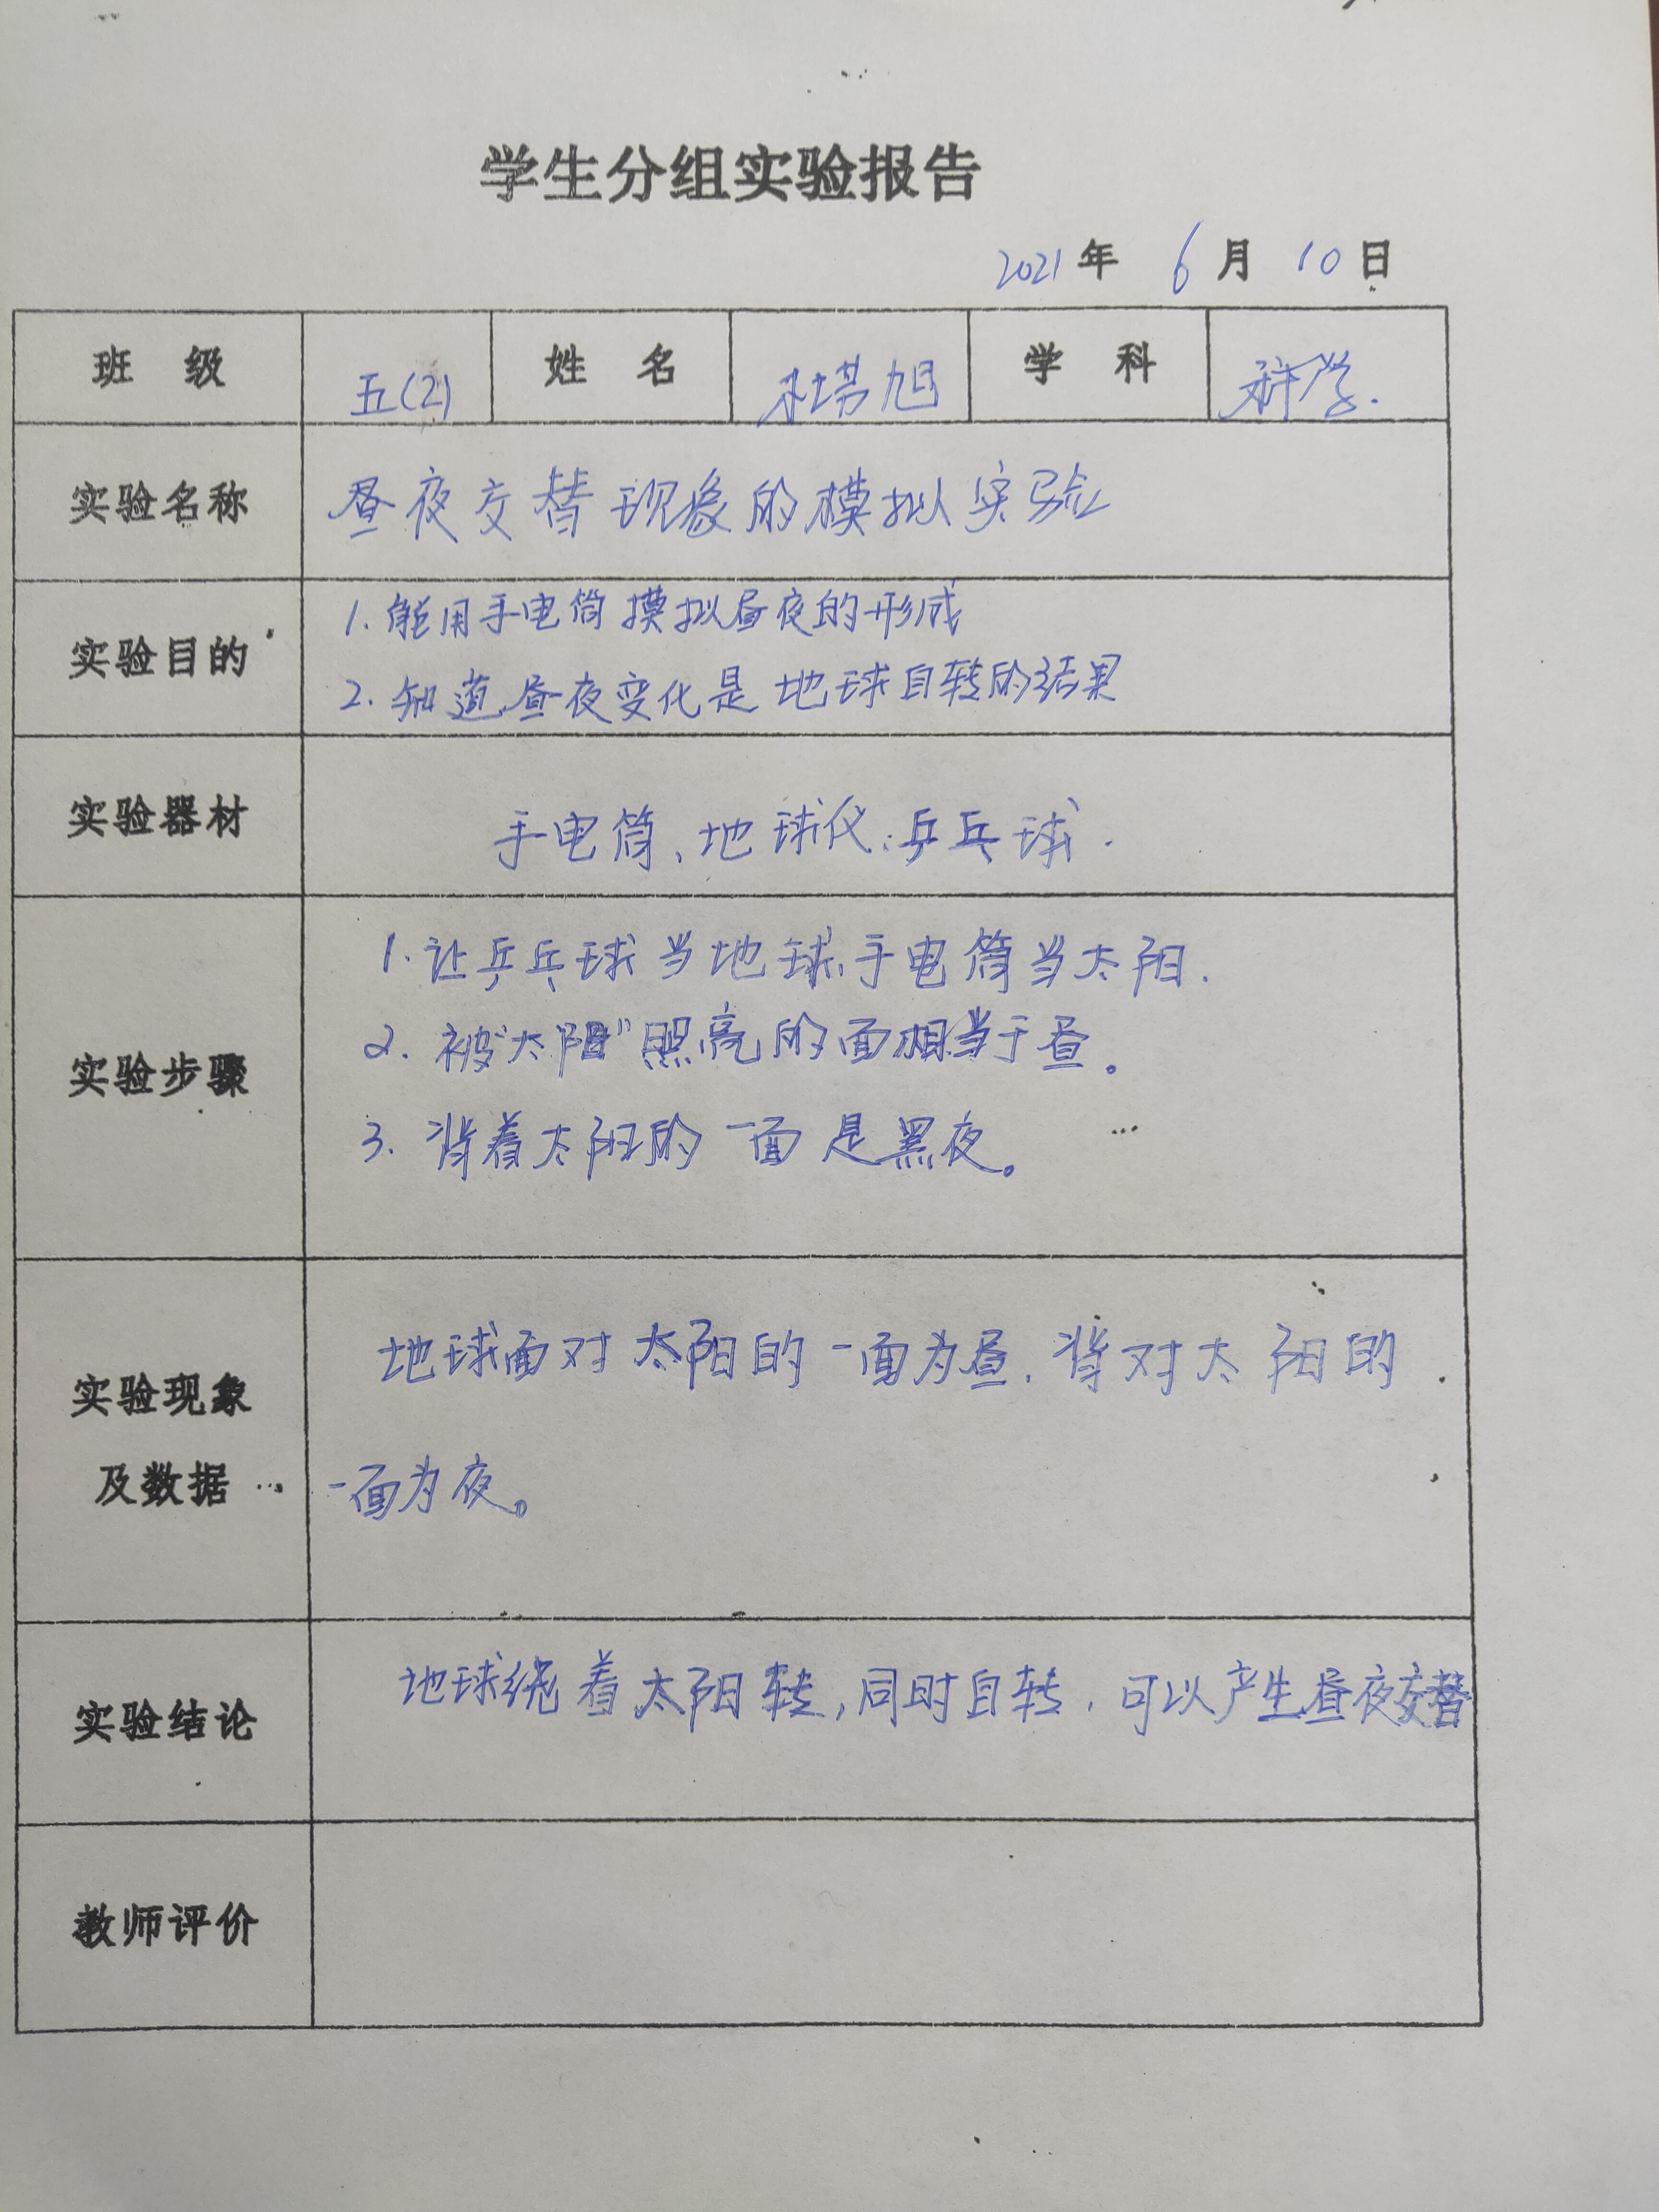 学生分组实验报告
2021年 6月 10日
班 级 五(2) 姓 名 旭 学 科 科学.
实验名称 昼夜交替现象的模拟实验
实验目的
1. 能用手电筒摸拟昼夜的形成
2. 知道昼夜变化是地球自转的结果
实验器材 手电筒、地球仪、乒乓球.
实验步骤
1. 让乒乓球当地球,手电筒当太阳.
2. 被“太阳”照亮的面相当于昼。
3. 背着太阳的一面是黑夜。
实验现象
及数据
地球面对太阳的一面为昼.背对太阳的
一面为夜。
实验结论 地球绕着太阳转,同时自转,可以产生昼夜交替
教师评价